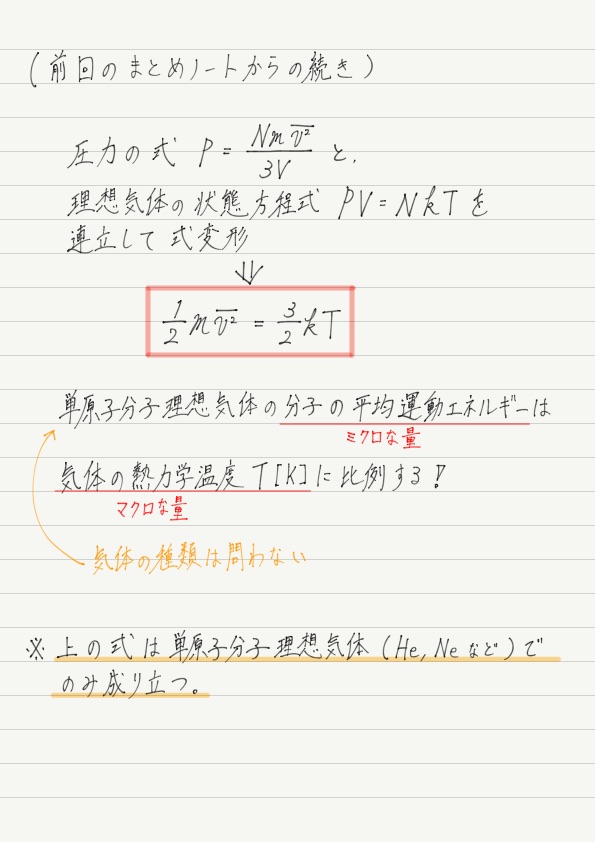 (前回のまとめノートからの続き)
圧力の式 P = Nm\overline{v²}/3V と、
理想気体の状態方程式 PV = NkT を
連立して式変形
⇓
1/2 m\overline{v²} = 3/2 kT
単原子分子理想気体の分子の平均運動エネルギーは
ミクロな量
気体の熱力学温度 T[K]に比例する!
マクロな量
気体の種類は問わない
※ 上の式は単原子分子理想気体 (He, Ne など) で
のみ成り立つ。